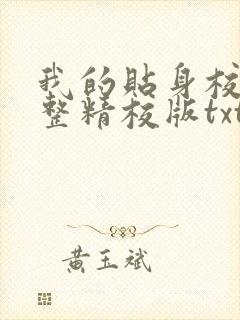 我的貼身校
整精校版txt
黃玉斌